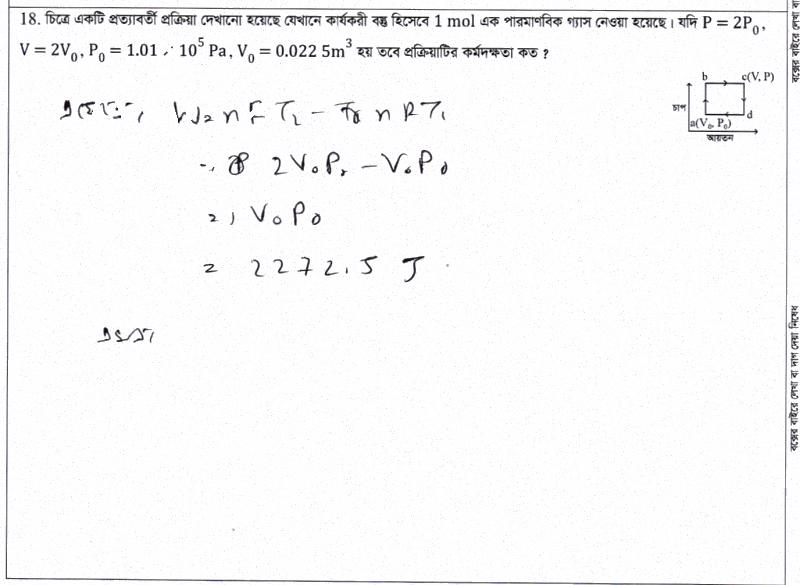 18. চিত্রে একটি প্রত্যাবর্তী প্রক্রিয়া দেখানো হয়েছে যেখানে কার্যকরী বস্তু হিসেবে 1 mol এক পারমাণবিক গ্যাস নেওয়া হয়েছে। যদি P = 2P₀,
V = 2V₀, P₀ = 1.01 × 10⁵ Pa, V₀ = 0.022 5m³ হয় তবে প্রক্রিয়াটির কর্মদক্ষতা কত ?
b c(V, P)
চাপ
d
a(V₀, P₀)
আয়তন
T₂ - nRT₁
2V₀P₀ - V₀P₀
= V₀P₀
= 2272.5 J
বক্সের বাইরে লেখা বা দাগ দেয়া নিষেধ